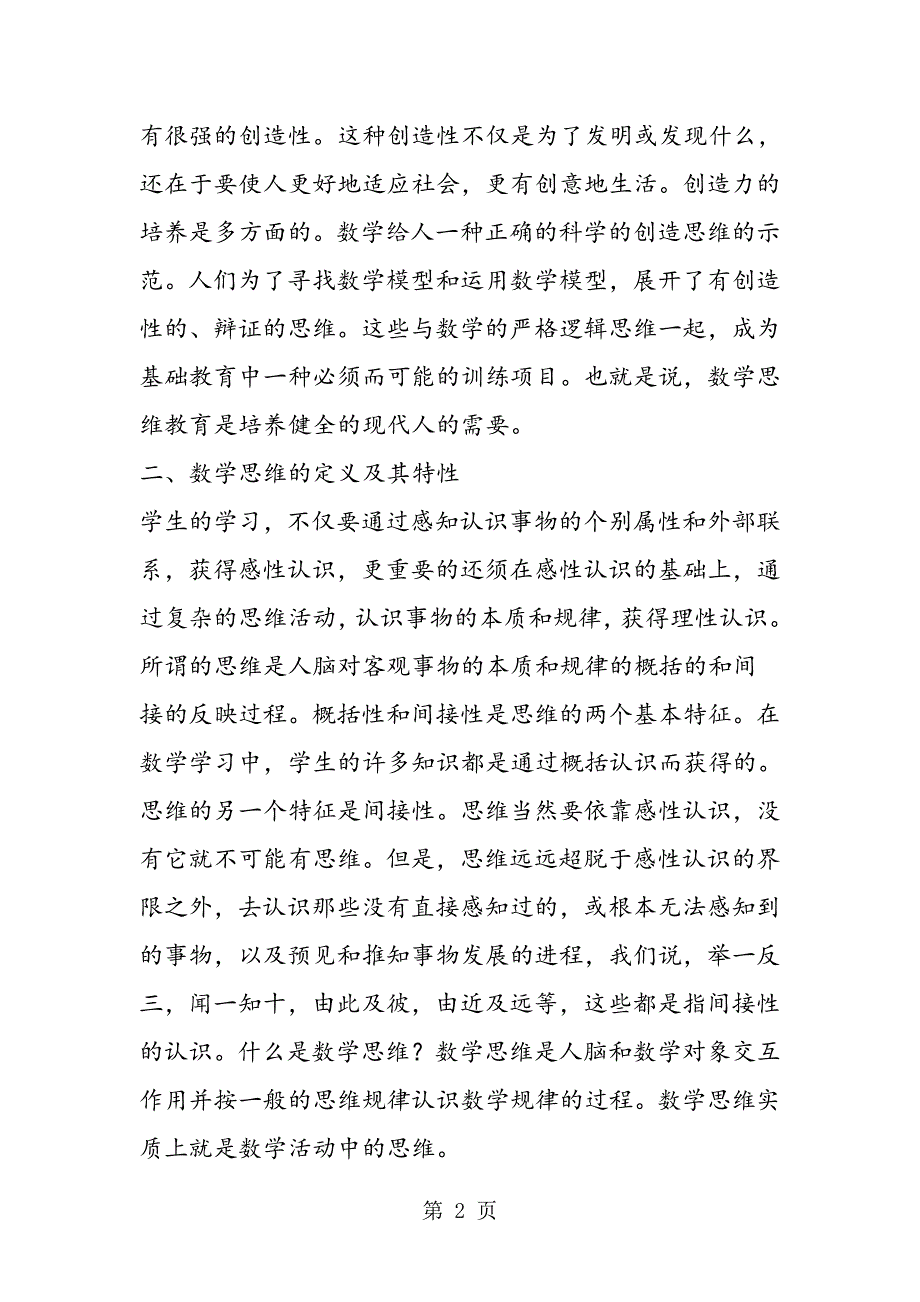 有很强的创造性。这种创造性不仅是为了发明或发现什么，
还在于要使人更好地适应社会，更有创意地生活。创造力的
培养是多方面的。数学给人一种正确的科学的创造思维的示
范。人们为了寻找数学模型和运用数学模型，展开了有创造
性的、辩证的思维。这些与数学的严格逻辑思维一起，成为
基础教育中一种必须而可能的训练项目。也就是说，数学思
维教育是培养健全的现代人的需要。
二、数学思维的定义及其特性
学生的学习，不仅要通过感知认识事物的个别属性和外部联
系，获得感性认识，更重要的还须在感性认识的基础上，通
过复杂的思维活动，认识事物的本质和规律，获得理性认识。
所谓的思维是人脑对客观事物的本质和规律的概括的和间
接的反映过程。概括性和间接性是思维的两个基本特征。在
数学学习中，学生的许多知识都是通过概括认识而获得的。
思维的另一个特征是间接性。思维当然要依靠感性认识，没
有它就不可能有思维。但是，思维远远超脱于感性认识的界
限之外，去认识那些没有直接感知过的，或根本无法感知到
的事物，以及预见和推知事物发展的进程，我们说，举一反
三，闻一知十，由此及彼，由近及远等，这些都是指间接性
的认识。什么是数学思维？数学思维是人脑和数学对象交互
作用并按一般的思维规律认识数学规律的过程。数学思维实
质上就是数学活动中的思维。
第 2 页